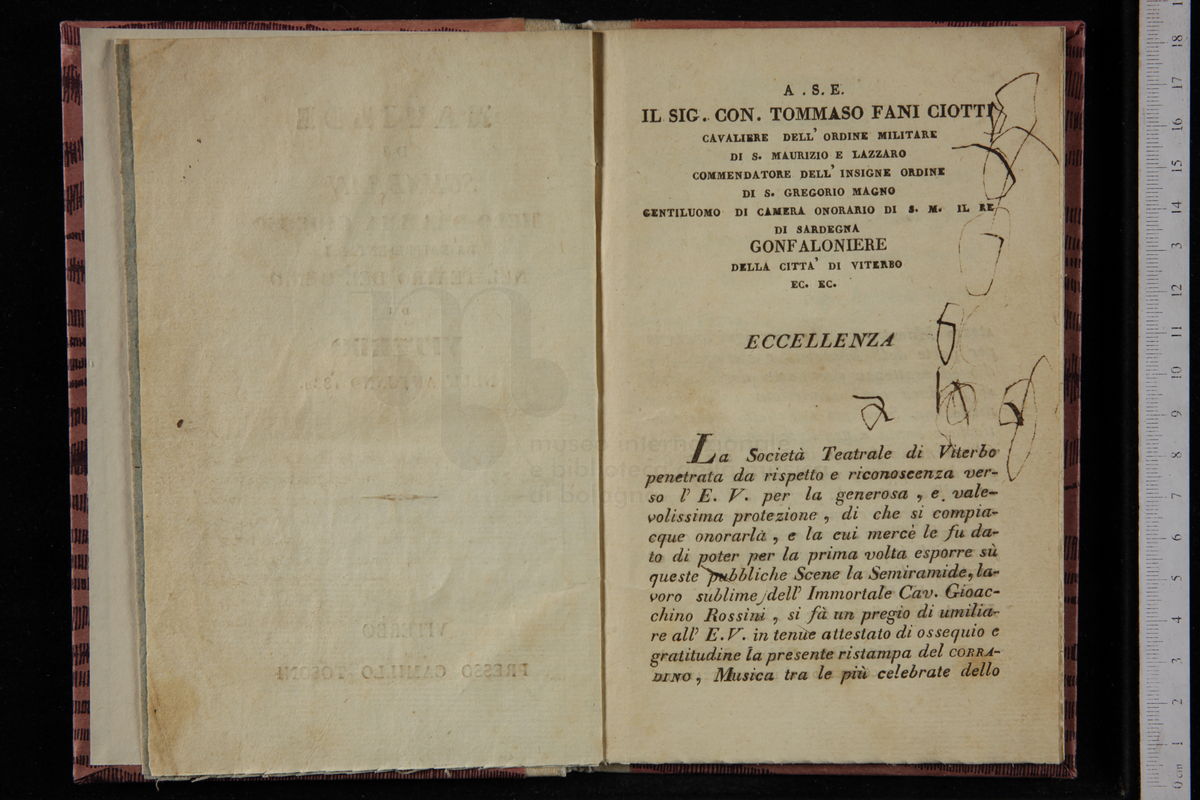 A . S. E.
IL SIG. CON. TOMMASO FANI CIOTTI
CAVALIERE DELL' ORDINE MILITARE
DI S. MAURIZIO E LAZZARO
COMMENDATORE DELL' INSIGNE ORDINE
DI S. GREGORIO MAGNO
GENTILUOMO DI CAMERA ONORARIO DI S. M. IL RE
DI SARDEGNA
GONFALONIERE
DELLA CITTA' DI VITERBO
EC. EC.
ECCELLENZA
La Società Teatrale di Viterbo
penetrata da rispetto e riconoscenza ver-
so l' E. V. per la generosa , e vale-
volissima protezione , di che si compia-
cque onorarlà , e la cui mercè le fu da-
to di poter per la prima volta esporre sù
queste pubbliche Scene la Semiramide, la-
voro sublime dell' Immortale Cav. Gioac-
chino Rossini , si fà un pregio di umilia-
re all' E. V. in tenùe attestato di ossequio e
gratitudine la presente ristampa del CORRA-
DINO , Musica tra le più celebrate dello